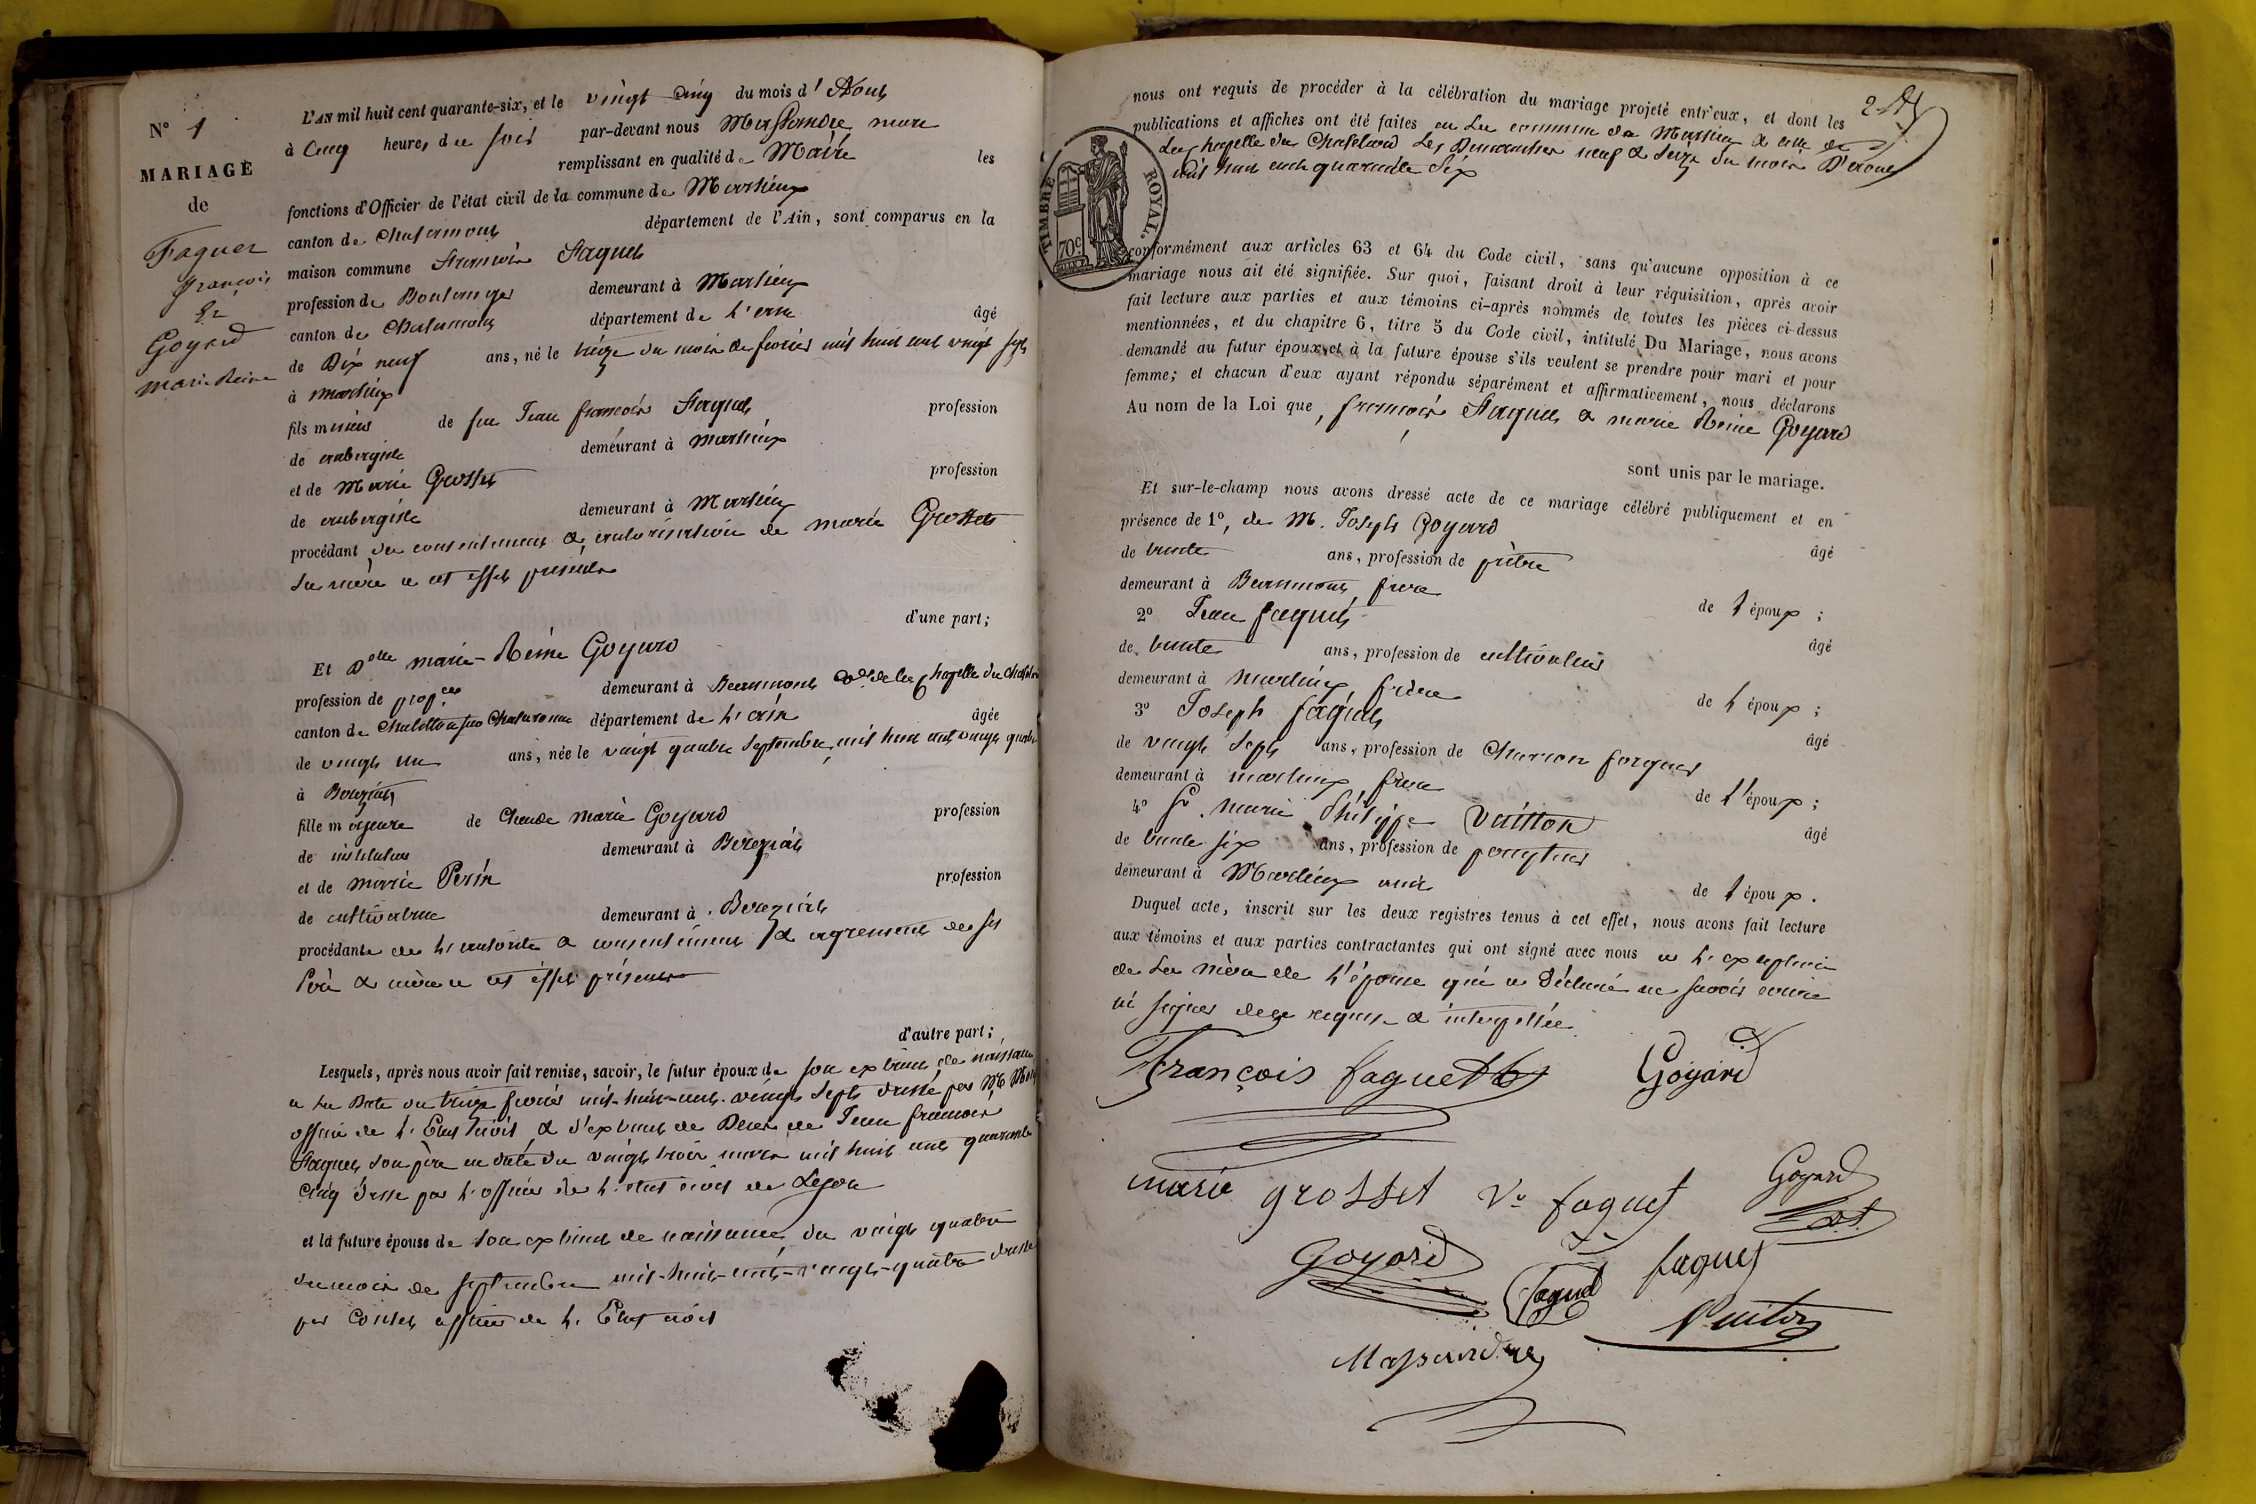 N° 1
MARIAGE
de
Faguet
françois
Et
Goyard
marie Reine
L'AN mil huit cent quarante-six, et le vingt cinq du mois d'Aout
à Cinq heures du soir par-devant nous Massandre marc
remplissant en qualité de Maire les
fonctions d'Officier de l'état civil de la commune de Marlieux
canton de Chalamont département de l'Ain, sont comparus en la
maison commune françois Faguet
profession de Boulanger demeurant à Marlieux
canton de Chalamont département de L'ain âgé
de Dix neuf ans, né le treize du mois de fevrier mil huit cent vingt sept
à marlieux
fils mineur de feu Jean françois Faguet profession
de aubergiste demeurant à marlieux
et de Marie Grosset profession
de aubergiste demeurant à Marlieux
procédant du consentement & autorisation de marie Grosset
sa mère a cet effet présente
d'une part;
Et Delle marie-Reine Goyard
profession de demeurant à Beaumont de la Chapelle du Chatelard
canton de Chatillon sur Chalaronne département de L'ain âgée
de vingt un ans, née le vingt quatre Septembre, mil huit cent vingt quatre
à Béréziat
fille majeure de Claude Marie Goyard profession
de instituteur demeurant à Béréziat
et de marie Perin profession
de cultivatrice demeurant à Béréziat
procédante de L'autorité & consentement & agrement de ses
Père & mère a cet effet présents
d'autre part;
Lesquels, après nous avoir fait remise, savoir, le futur époux de son extrait de naissance
a la Date du treize fevrier mil-huit-cent-vingt Sept dressé par M.
officier de L'Etat civil & d'extrait de Décès de Jean françois
Faguet son père en date du vingt trois mars mil huit cent quarante
Cinq dressé par L'officier de L'état civil de Lyon
et la future épouse de son extrait de naissance, du vingt quatre
du mois de septembre mil-huit-cent-vingt-quatre dressé
par officier de L'Etat civil
nous ont requis de procéder à la célébration du mariage projeté entr'eux, et dont les
publications et affiches ont été faites en la commune de Marlieux & celle de
La Chapelle du Chatelard Les Dimanches neuf & seize du mois D'aout
mil huit cent quarante Six
TIMBRE ROYAL.
70c
conformément aux articles 63 et 64 du Code civil, sans qu'aucune opposition à ce
mariage nous ait été signifiée. Sur quoi, faisant droit à leur réquisition, après avoir
fait lecture aux parties et aux témoins ci-après nommés de toutes les pièces ci-dessus
mentionnées, et du chapitre 6, titre 5 du Code civil, intitulé Du Mariage, nous avons
demandé au futur époux et à la future épouse s'ils veulent se prendre pour mari et pour
femme; et chacun d'eux ayant répondu séparément et affirmativement, nous déclarons
Au nom de la Loi que, françois Faguet & marie Reine Goyard
sont unis par le mariage.
Et sur-le-champ nous avons dressé acte de ce mariage célébré publiquement et en
présence de 1°, de M. Joseph Goyard
âgé
de trente ans, profession de prêtre
demeurant à Beaumont, frere de l'époux;
2° Jean faguet
âgé
de trente ans, profession de cultivateur
demeurant à Marlieux frère de l'époux;
3° Joseph faguet
âgé
de vingt Sept ans, profession de Charron forgeur
demeurant à marlieux frère de l'époux;
4° Sr. Marie Philippe Vuitton
âgé
de trente six ans, profession de
demeurant à Marlieux ami de l'époux.
Duquel acte, inscrit sur les deux registres tenus à cet effet, nous avons fait lecture
aux témoins et aux parties contractantes qui ont signé avec nous a L'exception
de La mère de L'épouse qui a Déclaré ne savoir écrire
ni signer de ce requise & interpellée
François faguet
Goyard
marie grosset ve faguet
Goyard
Goyard
faguet
faguet
Vuitton
Massandre